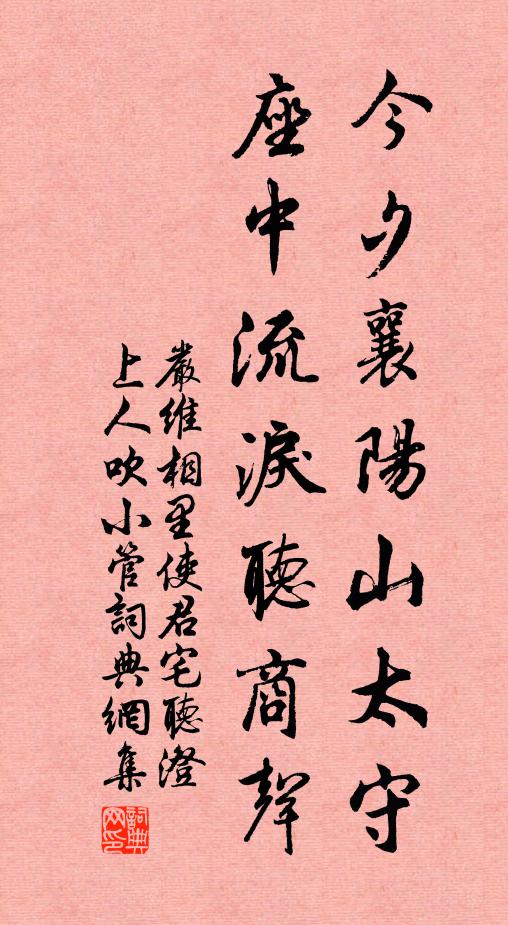 今夕襄陽山太守
座中流淚聽商聲
嚴維相里使君宅聽澄
上人吹小管詞典網集
詞典
网印